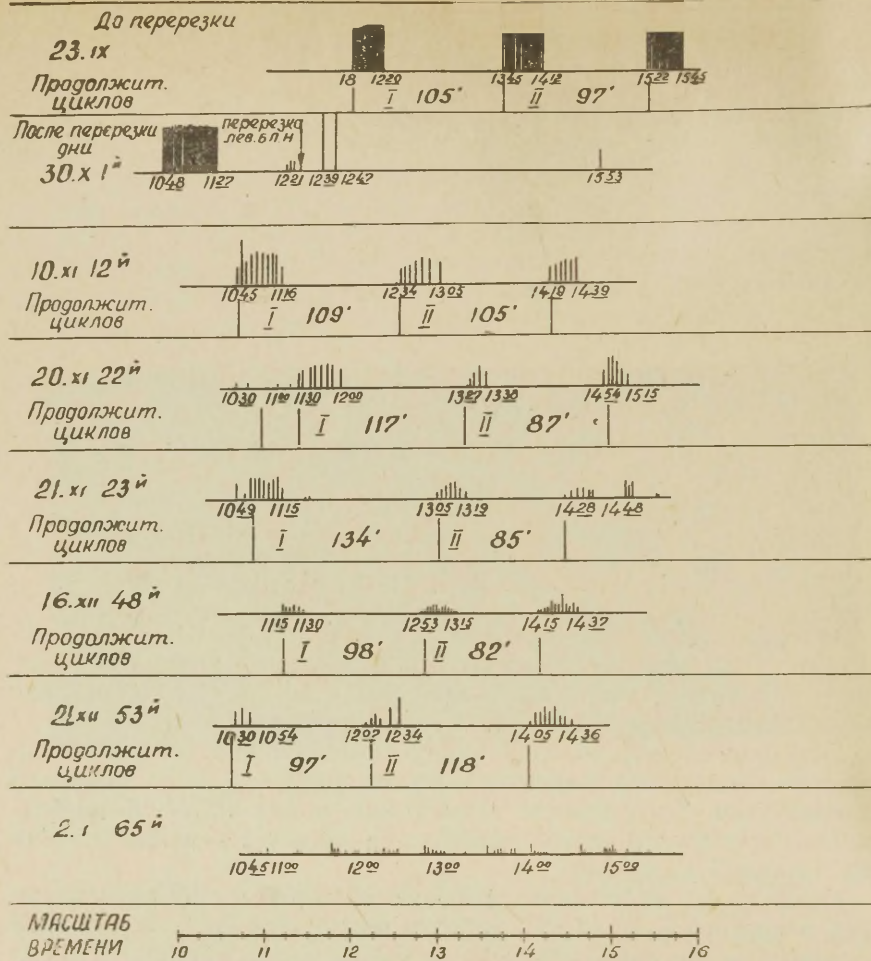 До перерезки
23.IX
18 1220 1345 1412 1522 1545
Продолжит. циклов I 105′ II 97′
После перерезки
дни
перерезка
лев. б П Н
30.X 1й
1048 1127 1221 1239 1247 1553
10.XI 12й
1045 1116 1234 1305 1419 1439
Продолжит. циклов I 109′ II 105′
20.XI 22й
1030 1100 1130 1200 1327 1338 1454 1515
Продолжит. циклов I 117′ II 87′
21.XI 23й
1049 1115 1305 1319 1428 1448
Продолжит. циклов I 134′ II 85′
16.XII 48й
1115 1130 1253 1315 1415 1437
Продолжит. циклов I 98′ II 82′
21XII 53й
1030 1054 1207 1234 1405 1436
Продолжит. циклов I 97′ II 118′
2.I 65й
1045 1100 1200 1300 1400 1509
МАСШТАБ
ВРЕМЕНИ 10 11 12 13 14 15 16